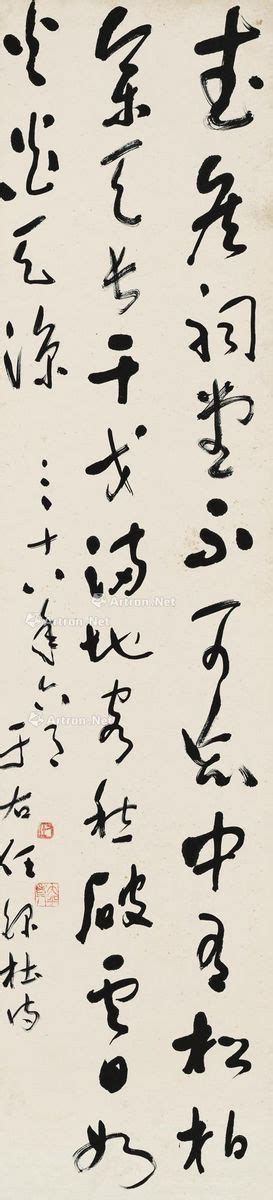 武侯祠堂不可忘中有松柏
參天長干戈滿地客愁破雲日如
火炎天涼
三十八年六月于右任録杜詩
Artron.Net
Artron.Net